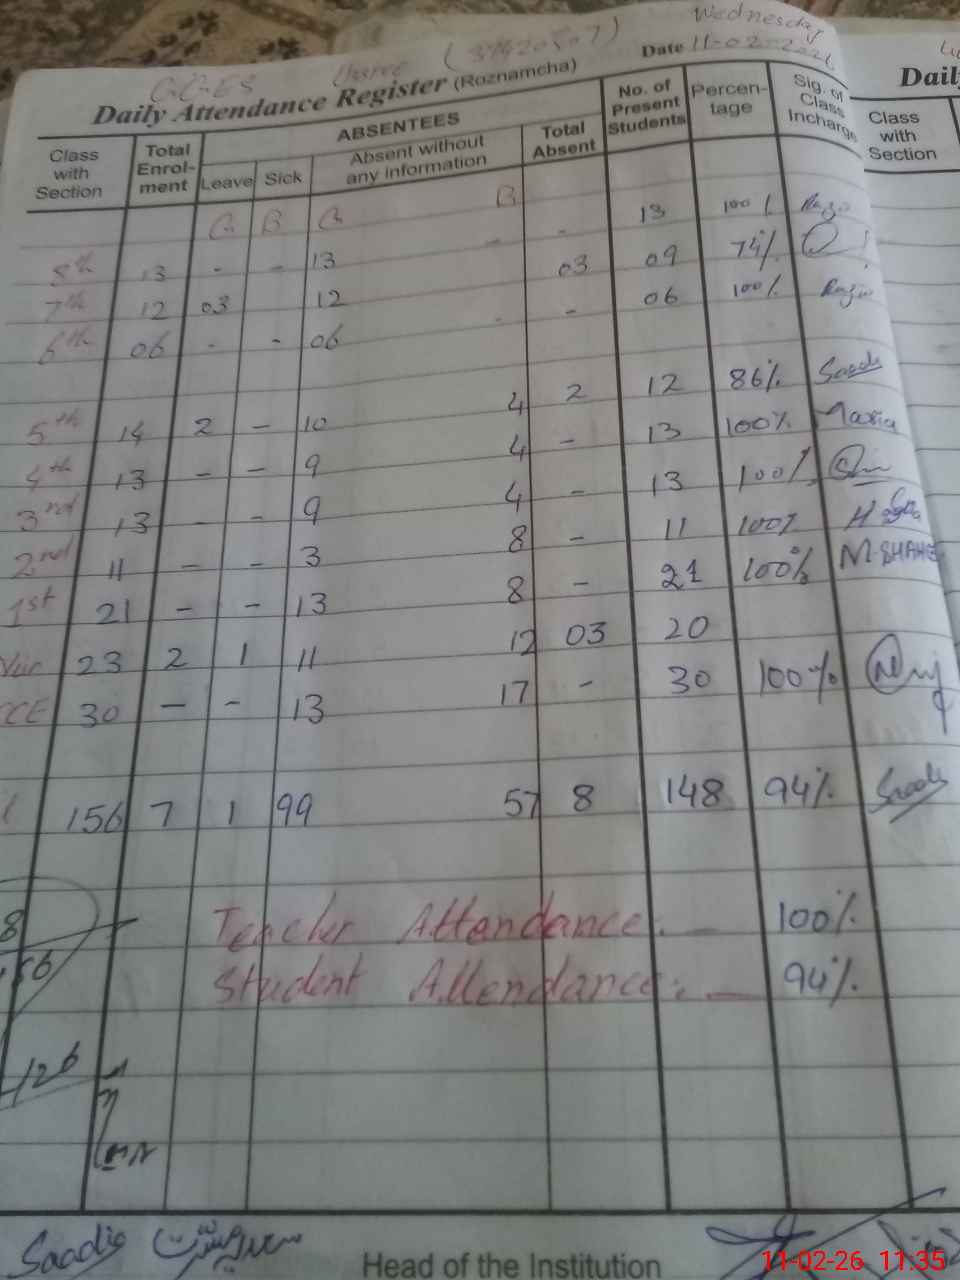 Wednesday
G.G.E.S (37420507)
Date 11-02-2026
Daily Attendance Register (Roznamcha)
Class with Section Total Enrol-ment ABSENTEES Leave Sick Absent without any information Total Absent No. of Present Students Percen-tage Sig. of Class Incharge
G B G B
8th 13 - - 13 - - 13 100% Razia
7th 12 03 - 12 03 09 74%
6th 06 - - 06 - - 06 100% Razia
5th 14 2 - 10 4 2 12 86% Saadia
4th 13 - - 9 4 - 13 100% Maria
3rd 13 - - 9 4 - 13 100%
2nd 11 - - 3 8 - 11 100%
1st 21 - - 13 8 - 21 100%
Nur 23 2 1 11 12 03 20
ECE 30 - - 13 17 - 30 100%
156 7 1 99 57 8 148 94% Saadia
8
156
Teacher Attendance:- 100%
Student Attendance:- 94%
126
Saadia
Head of the Institution
Daily
Class with Section
11-02-26 11:35